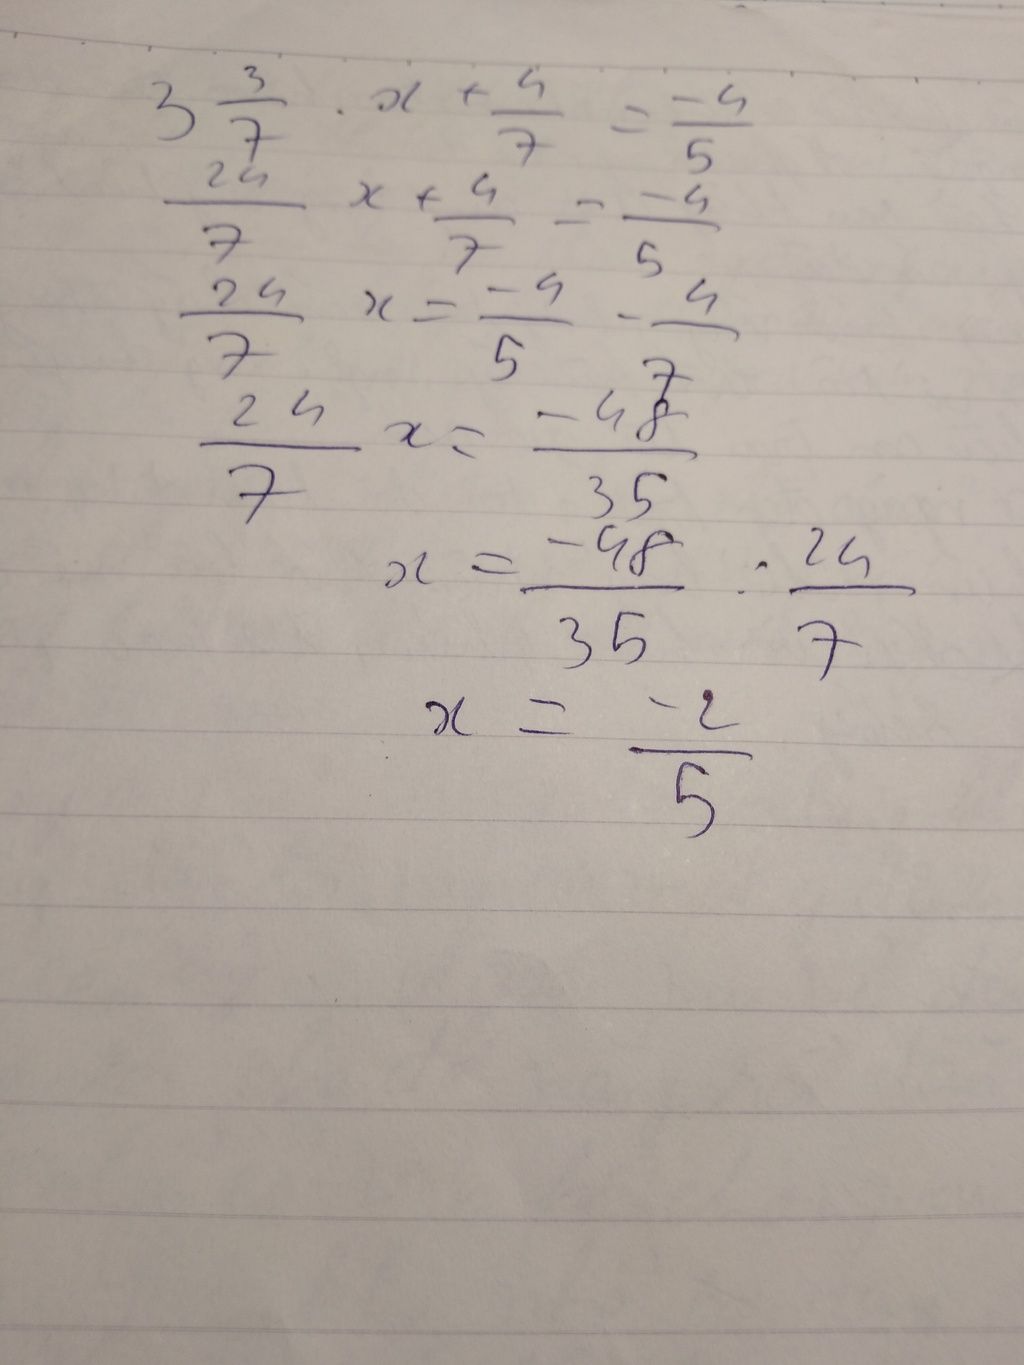 3 3/7 . x + 4/7 = -4/5
24/7 x + 4/7 = -4/5
24/7 x = -4/5 - 4/7
24/7 x = -48/35
x = -48/35 : 24/7
x = -2/5